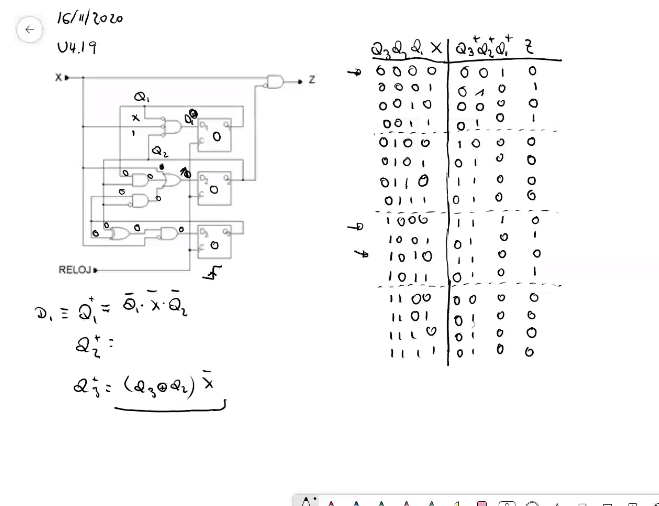 16/11/2020
U4.19
X
Z
Q1
X
1
Q2
D1
0
0 0 0
D2
0
0 0
0 0 0
0
RELOJ
D1 ≡ Q1+ = Q̄1 · X̄ · Q̄2
Q2+ =
Q3+ = (Q3 ⊕ Q2) X̄
Q3 Q2 Q1 X Q3+ Q2+ Q1+ Z
0 0 0 0 0 0 1 0
0 0 0 1 0 1 0 1
0 0 1 0 0 0 0 0
0 0 1 1 0 1 0 1
0 1 0 0 1 0 0 0
0 1 0 1 0 1 0 0
0 1 1 0 1 1 0 0
0 1 1 1 0 1 0 0
1 0 0 0 1 1 1 0
1 0 0 1 0 1 0 1
1 0 1 0 1 1 0 0
1 0 1 1 0 1 0 1
1 1 0 0 0 0 0 0
1 1 0 1 0 1 0 0
1 1 1 0 0 1 0 0
1 1 1 1 0 1 0 0